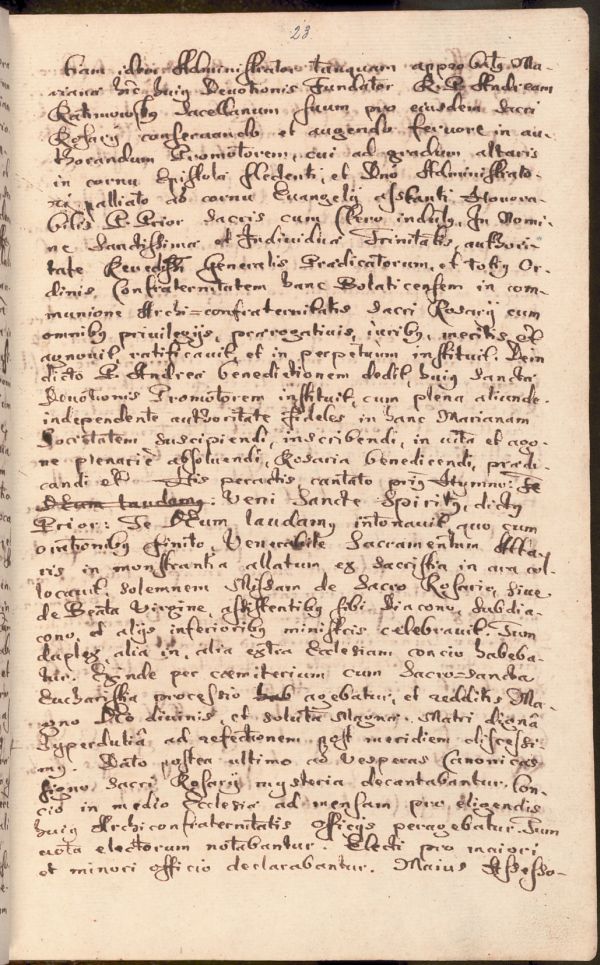 23
tiam idem Administrator tanquam approbatq Ma-
rianae hic huiq Devotionis Fundator R. P. Andream
Ratimowsky Sacellanum suum pro eiusdem Sacri
Rosarij conservando et augendo fervore in au-
thocandum Promotorem, cui ad gradum altaris
in cornu Epistolae flectenti, et Dno Administrato-
ri palliato ad cornu Evangelij astanti Honora-
bilis P. Prior Sacris cum Clero indutq, In Nomi-
ne Sanctissimae et Individuae Trinitatis, authori-
tate Revdissi Generalis Praedicatorum, et totiq Or-
dinis Confraternitatem hanc Bolaticensem in com-
munione Archi=confraternitatis Sacri Rosarij cum
omnibq privilegijs, praerogativis, iuribq, meritis etc
agnovit ratificavit, et in perpetuum instituit. Dein
dicto P. Andreae benedictionem dedit, huiq Sanctae
Devotionis Promotorem instituit, cum plena aliunde
independente authoritate Fideles in hanc Marianam
Societatem suscipiendi, inscribendi, in vita et ago-
ne plenarie absolvendi, Rosaria benedicendi, praedi-
candi etc. His peractis, cantato priq Hymno: Te
Deum laudamq: Veni Sancte Spiritq, dictq
Prior: Te Deum laudamq intonavit, quo cum
orationibq finito, Venerabile Sacramentum Alta-
ris in monstrantia allatum ex Sacristia in ara col-
locavit, solemnem Missam de Sacro Rosario, sive
de Beata Virgine, assistentibq sibi Diacono, Subdia-
cono, et alijs inferioribq ministris celebravit. Tum
duplex, alia in, alia extra Ecclesiam concio habeba-
tur. Exinde per caemiterium cum Sacro=Sancta
Eucharistia processio hab agebatur, et redditis Ma-
gno Deo divinis, et soluta Magnae Matri digna
Hyperdulia ad refectionem post meridiem discessi-
mq. Dato postea ultimo ad Vesperas Canonicas
signo Sacri Rosarij mysteria decantabantur. Con-
cio in medio Ecclesiae ad mensam pro eligendis
huiq Archiconfraternitatis Officijs peragebatur. Tum
vota electorum notabantur. Electi pro maiori
et minori officio declarabantur. Maius Assesso-